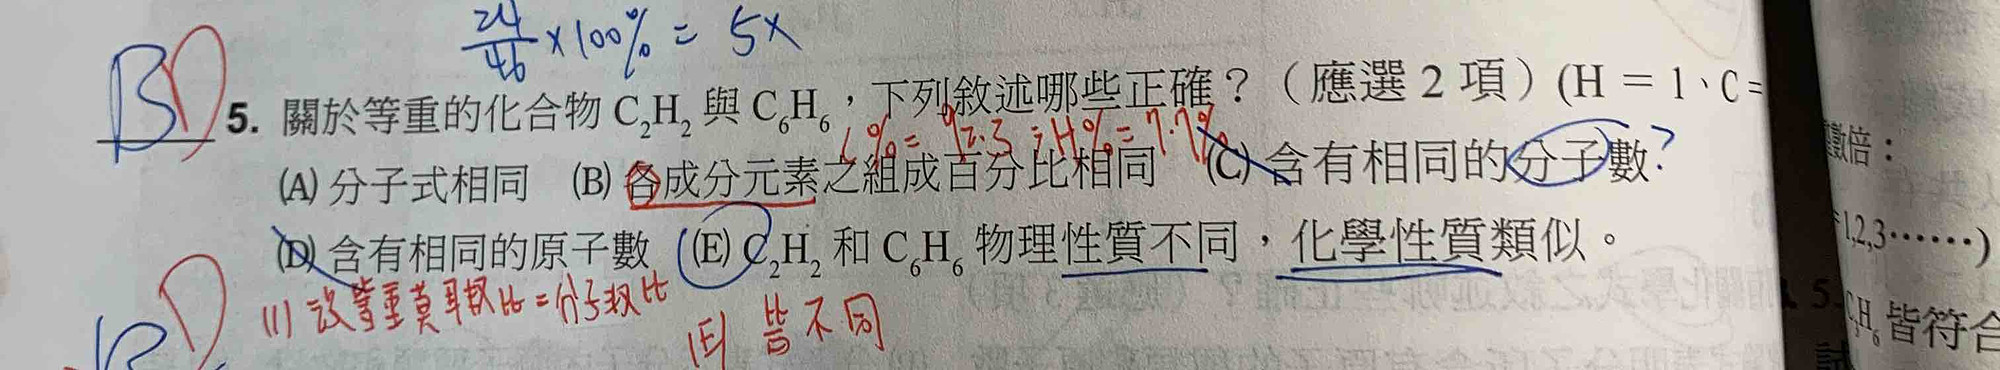 24/46 × 100% = 5x
BD 5. 關於等重的化合物 C₂H₂ 與 C₆H₆，下列敘述哪些正確？（應選 2 項）(H = 1、C =
C%= 92.3；H%= 7.7%
(A) 分子式相同 (B) 各成分元素之組成百分比相同 (C) 含有相同的分子數？
(D) 含有相同的原子數 (E) C₂H₂ 和 C₆H₆ 物理性質不同，化學性質類似。
設等重莫耳數比=分子數比
(E) 皆不同
數倍：
1,2,3⋯⋯)
5.
H₆ 皆符合
試